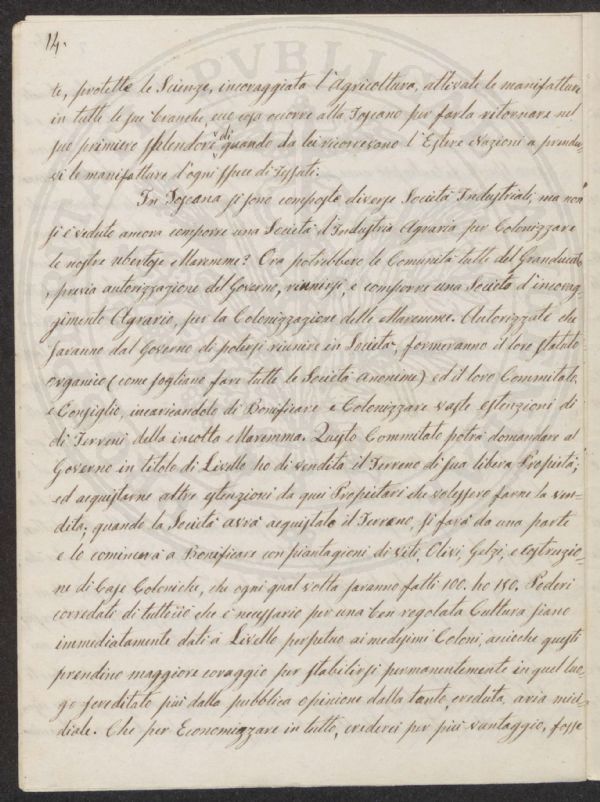 14.
te, protette le Scienze, incoraggiata l'Agricoltura, attivate le manifatture
in tutte le sue branche, ecco cosa occorre alla Toscana per farla ritornare nel
suo primiero splendore di quando da lei ricorrevano l'Estere Nazioni a prende-
vi le manifatture d'ogni spece di Tessuti.
In Toscana si sono composte diverse Società Industriali, ma non
si è veduto ancora comporre una Società d'Industria Agraria per Colonizzare
le nostre ubertose Maremme? Ora potrebbero le Comunità tutte del Granducato
, previa autorizzazione del Governo, riunirsi, e comporre una Società d'incorag-
gimento Agrario, per la Colonizzazione delle Maremme. Autorizzate che
saranno dal Governo di potersi riunire in Società, formeranno il loro statuto
organico (come sogliano fare tutte le Società anonime) ed il loro Commitato,
e Consiglio, incaricandolo di Bonificare e Colonizzare vaste estenzioni di
di Terreni della incolta Maremma. Questo Commitato potrà domandare al
Governo in titolo di Livello ho di vendita il Terreno di sua libera Propietà;
ed acquistarne altre estenzioni da quei Propietari che volessero farne la ven-
dita; quando la Società avrà acquistato il Terreno, si farà da una parte
e lo comincerà a Bonificare con piantagioni di Viti, Olivi, Gelzi, e costruzio-
ne di Case Coloniche, che ogni qual volta saranno fatti 100. ho 150. Poderi
corredati di tuttociò che è necessario per una ben regolata Cultura siano
immediatamente dati a Livello perpetuo ai medesimi Coloni, acioche questi
prendino maggiore coraggio per stabilirsi permanentemente in quel luo-
go screditato più dalla pubblica opinione dalla tanto, creduta, aria mici-
diale. Che per Economizzare in tutto, crederei per più vantaggio, fosse